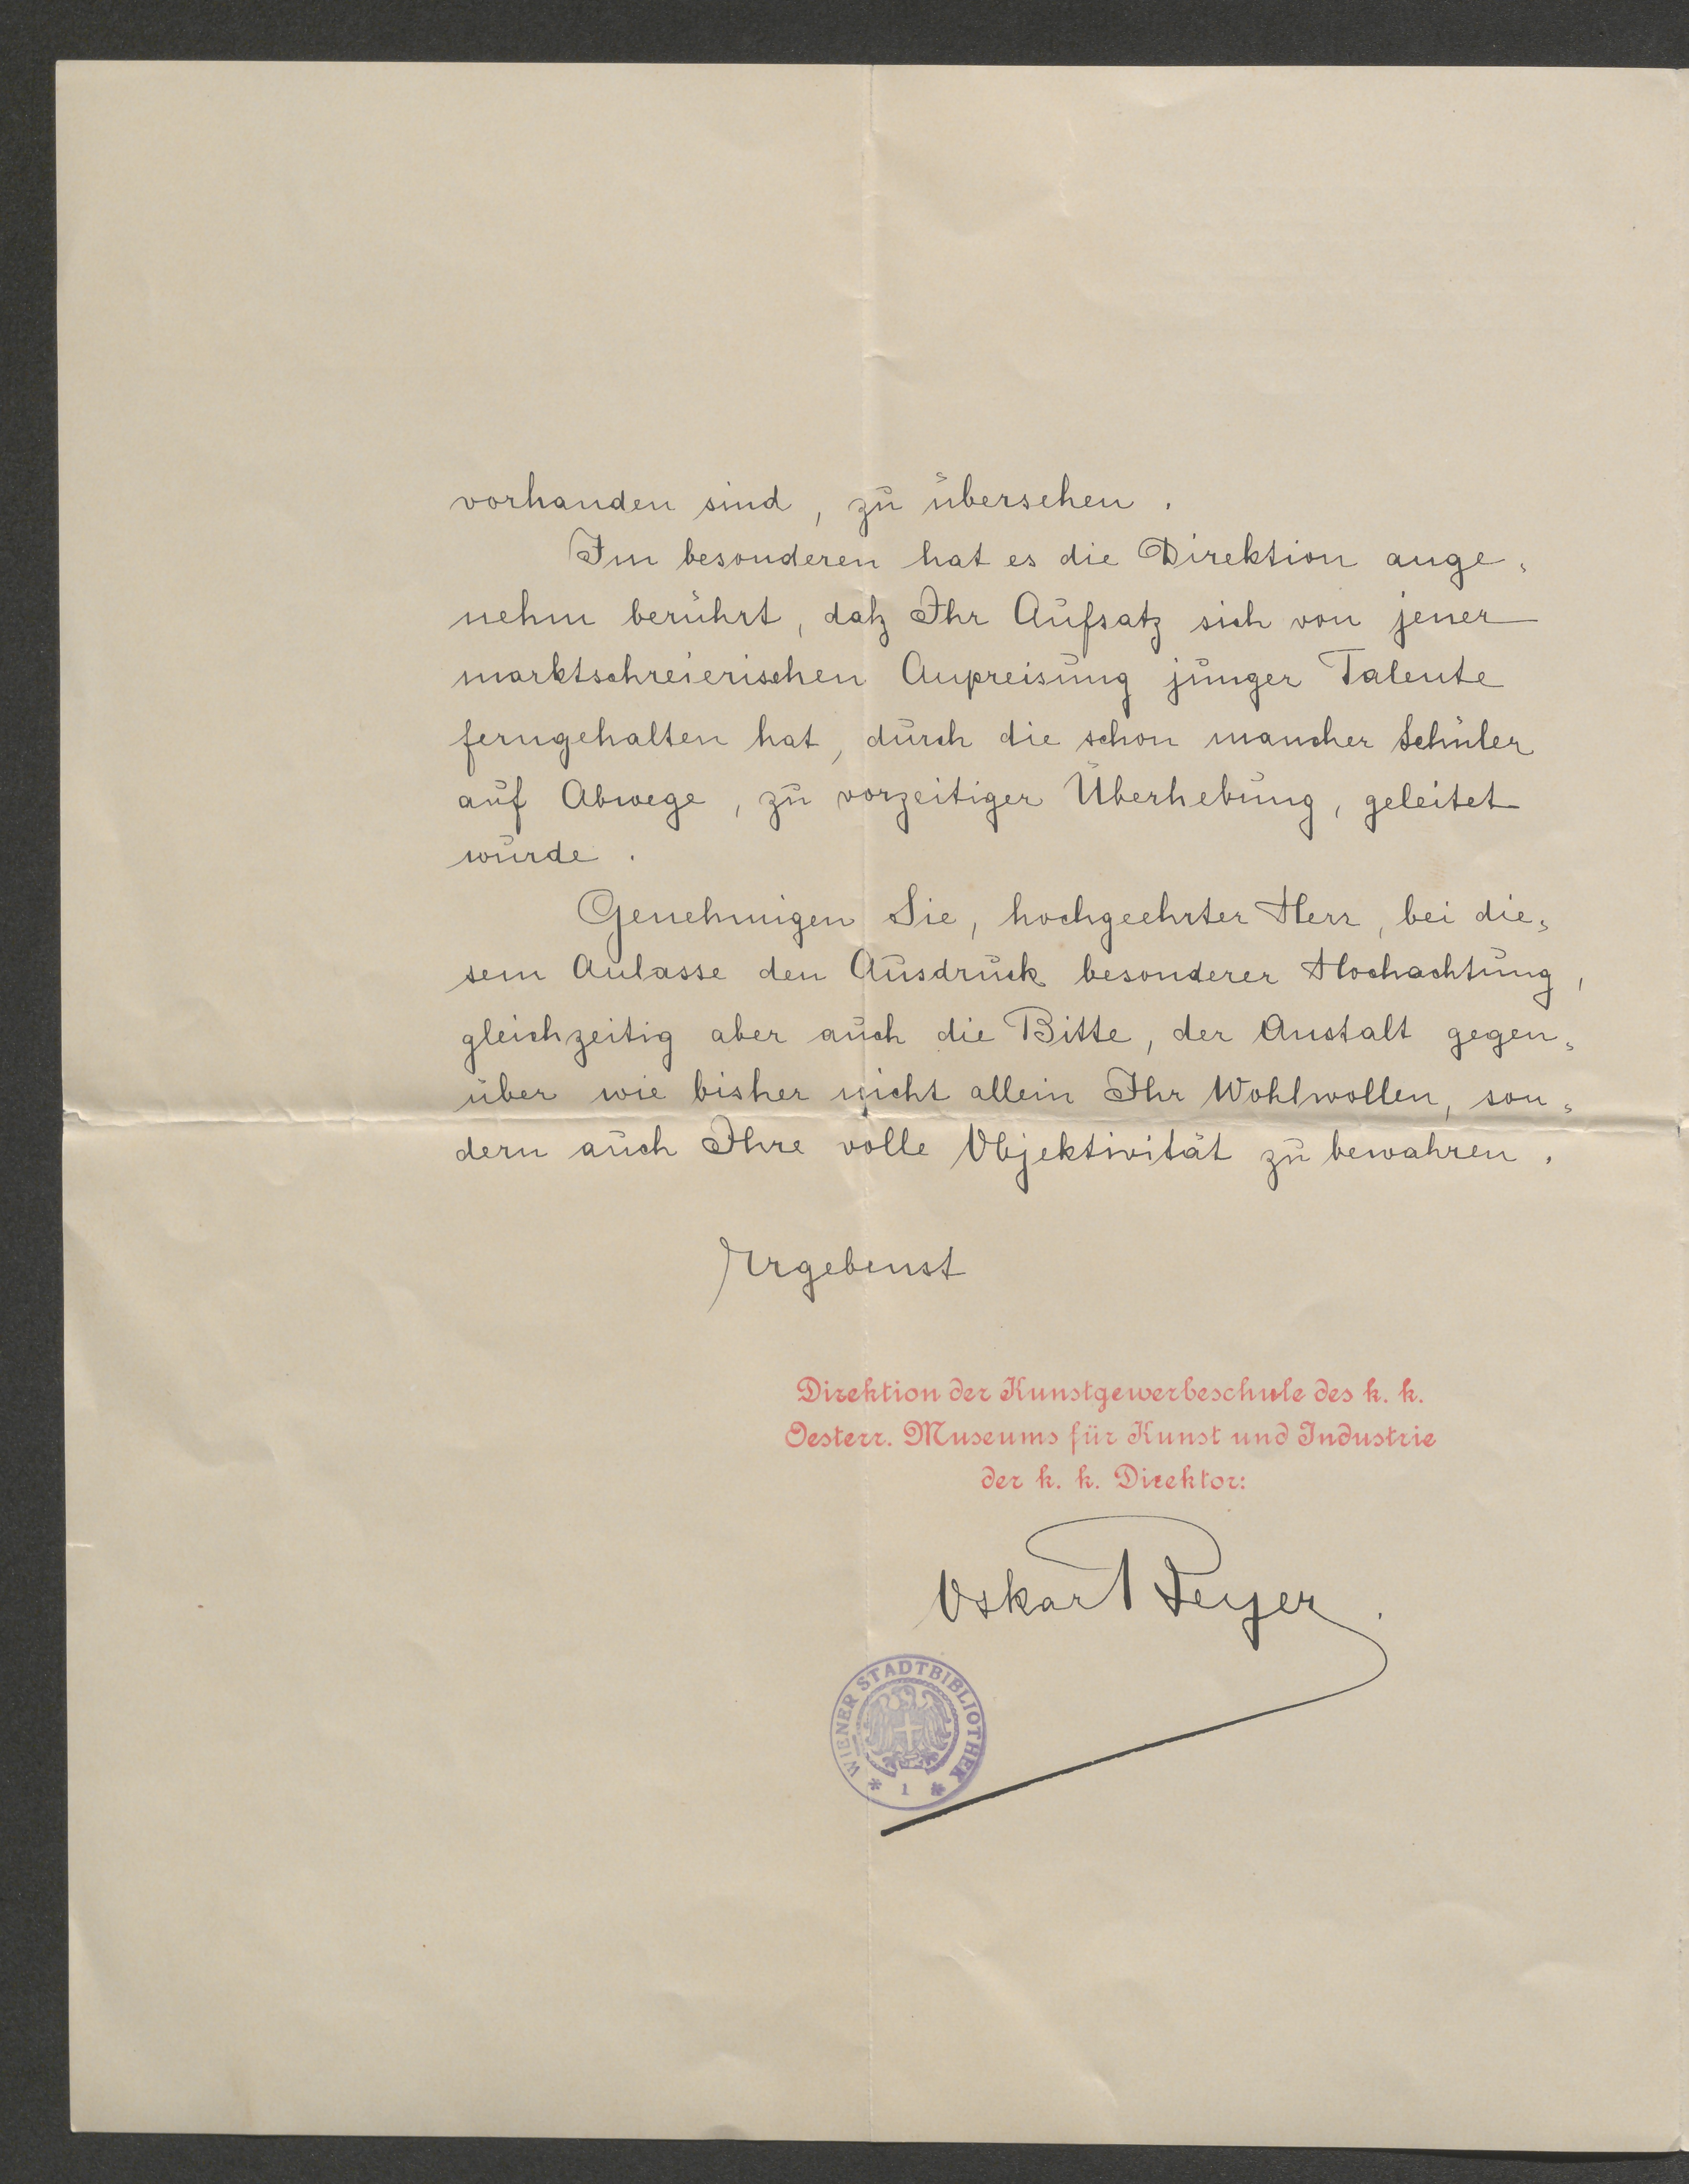 vorhanden sind, zu übersehen.
Im besonderen hat es die Direktion ange-
nehm berührt, daß Ihr Aufsatz sich von jener
marktschreierischen Anpreisung junger Talente
ferngehalten hat, durch die schon mancher Schüler
auf Abwege, zu vorzeitiger Überhebung, geleitet
wurde.
Genehmigen Sie, hochgeehrter Herr, bei die-
sem Anlasse den Ausdruck besonderer Hochachtung,
gleichzeitig aber auch die Bitte, der Anstalt gegen-
über wie bisher nicht allein Ihr Wohlwollen, son-
dern auch Ihre volle Objektivität zu bewahren.
Ergebenst
Direktion der Kunstgewerbeschule des k. k.
Oesterr. Museums für Kunst und Industrie
der k. k. Direktor:
Oskar Beyer
WIENER STADTBIBLIOTHEK
* 1 *